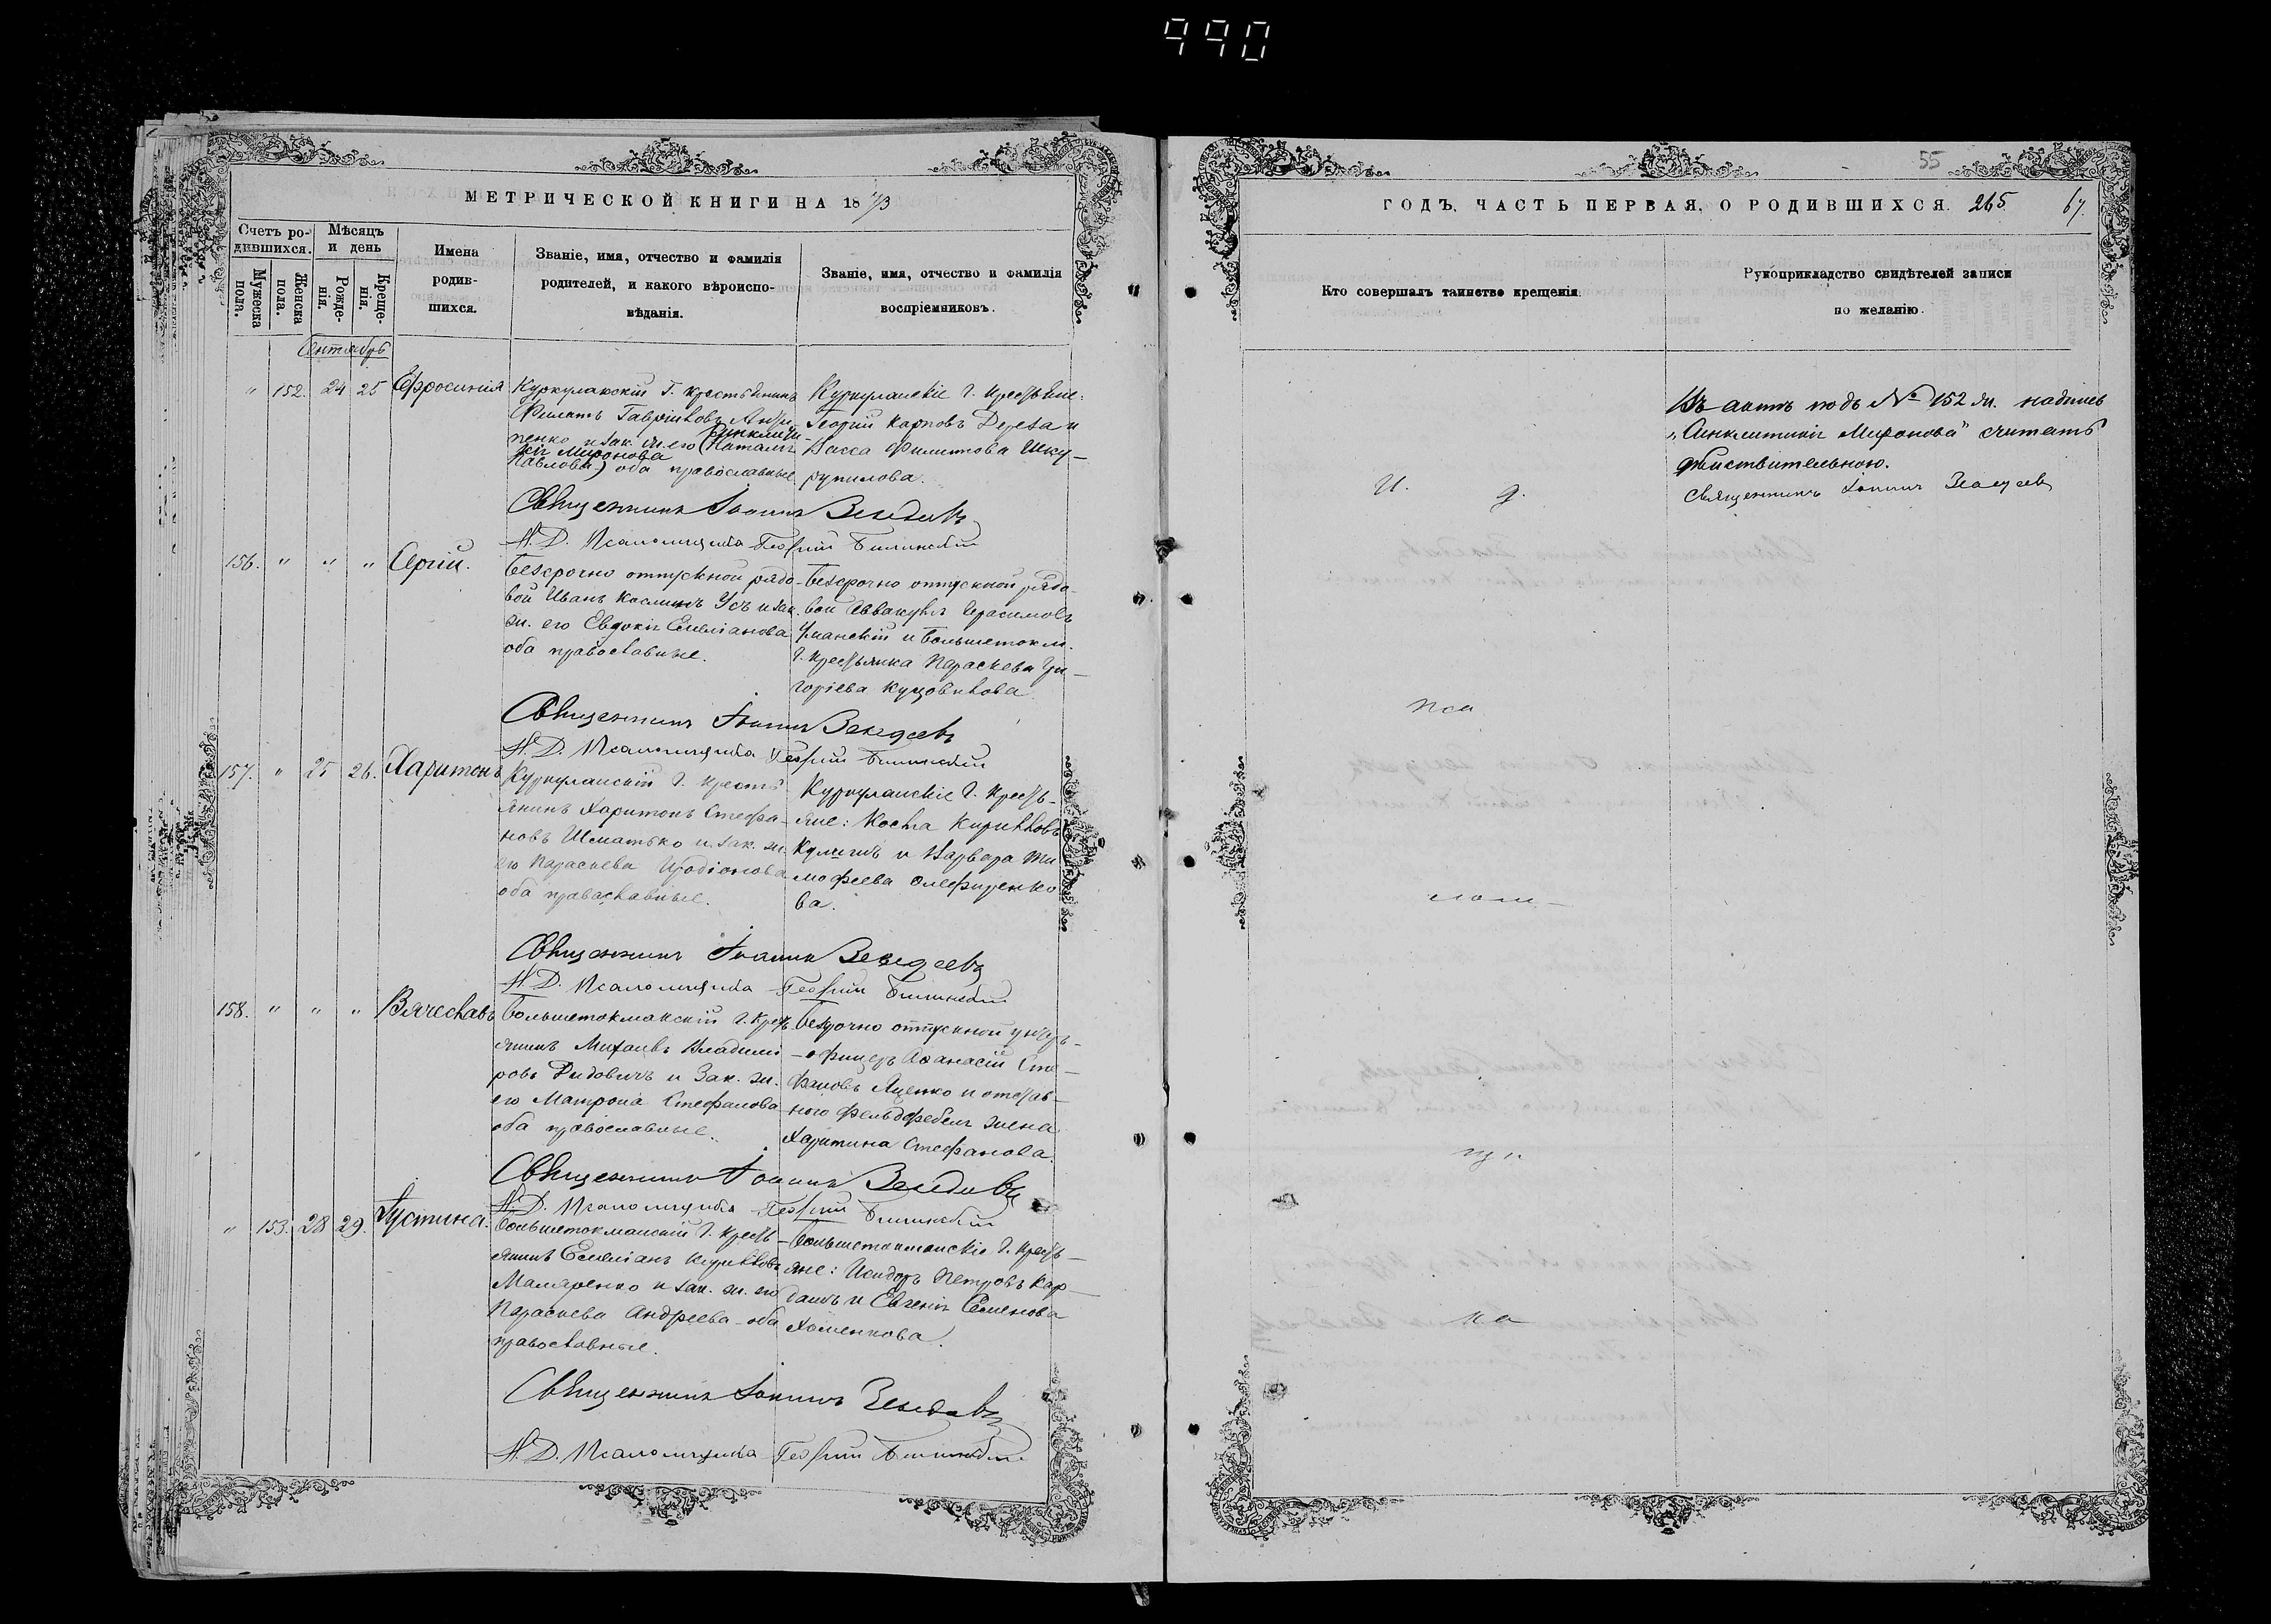 990
МЕТРИЧЕСКОЙ КНИГИ НА 1873
Счетъ ро-
дившихся.
Мѣсяцъ
и день
Мужеска
пола.
Женска
пола.
Рожде-
нія.
Креще-
нія.
Имена
родив-
шихся.
Званіе, имя, отчество и фамилія
родителей, и какого вѣроиспо-
вѣданія.
Званіе, имя, отчество и фамилія
воспріемниковъ.
Сентябрь
" 152. 24 25 Ефросинія
Куркулакскій Г. крестьянинъ
Филатъ Гавріиловъ
пенко и зак. ж. его (Наталія
Миронова
Павлова) оба православные
Куркулакскіе Г. Крестьяне:
Георгій Карповъ Дереза и
Васса Филиппова Шку-
рупилова.
Священникъ Іоаннъ Зеведеевъ
И. Д. Псаломщика Георгій
156. " " " Сергій.
Безсрочно отпускной рядо-
вой Иванъ Косминъ Усъ и зак.
ж. его Евдокія Емеліанова
оба православные.
Безсрочно отпускной рядо-
вой Аввакумъ Герасимовъ
Уманскій и Большетокм.
Г. Крестьянка Параскева Гри-
горіева Куцовикова
Священникъ Іоаннъ Зеведеевъ
И. Д. Псаломщика Георгій
157. " 25 26. Харитонъ
Куркулакскій Г. Кресть-
янинъ Харитонъ Стефа-
новъ Шматько и зак. ж.
его Параскева Иродіонова
оба православные.
Куркулакскіе Г. Кресть-
яне: Косма Кирилловъ
Кулишъ и Варвара Ти
мофеева Олефиренко
ва.
Священникъ Іоаннъ Зеведеевъ
И. Д. Псаломщика Георгій
158. " " " Вячеславъ
Большетокмакскій Г. Крест
янинъ Михаилъ Владимі
ровъ Дидовичъ и Зак. ж.
его Матрона Стефанова
оба православные.
Безсрочно отпускной унтеръ-
офицеръ Аѳанасій Сте-
фановъ Яценко и отстав-
ного фельдфебеля жена
Харитина Стефанова.
Священникъ Іоаннъ Зеведеевъ
И. Д. Псаломщика Георгій
" 153. 28 29. Іустина.
Большетокмакскій Г. Кресть-
янинъ Емеліанъ Кирилловъ
Маляренко и зак. ж. его
Параскева Андреева оба
православные.
Большетокмакскіе Г. Кресть-
яне: Исидоръ Петровъ Кар-
дашъ и Евгенія Семенова
Хоменкова.
Священникъ Іоаннъ Зеведеевъ
И. Д. Псаломщика Георгій
55
ГОДЪ, ЧАСТЬ ПЕРВАЯ, О РОДИВШИХСЯ. 265 67.
Кто совершалъ таинство крещенія
Рукоприкладство свидѣтелей записи
по желанію.
Въ актѣ подъ № 152 ж. надпись
„Синклитикія Миронова" считать
дѣйствительною.
Священникъ Іоаннъ Зеведеевъ
И. д.
Пса
лом-
щи
ка